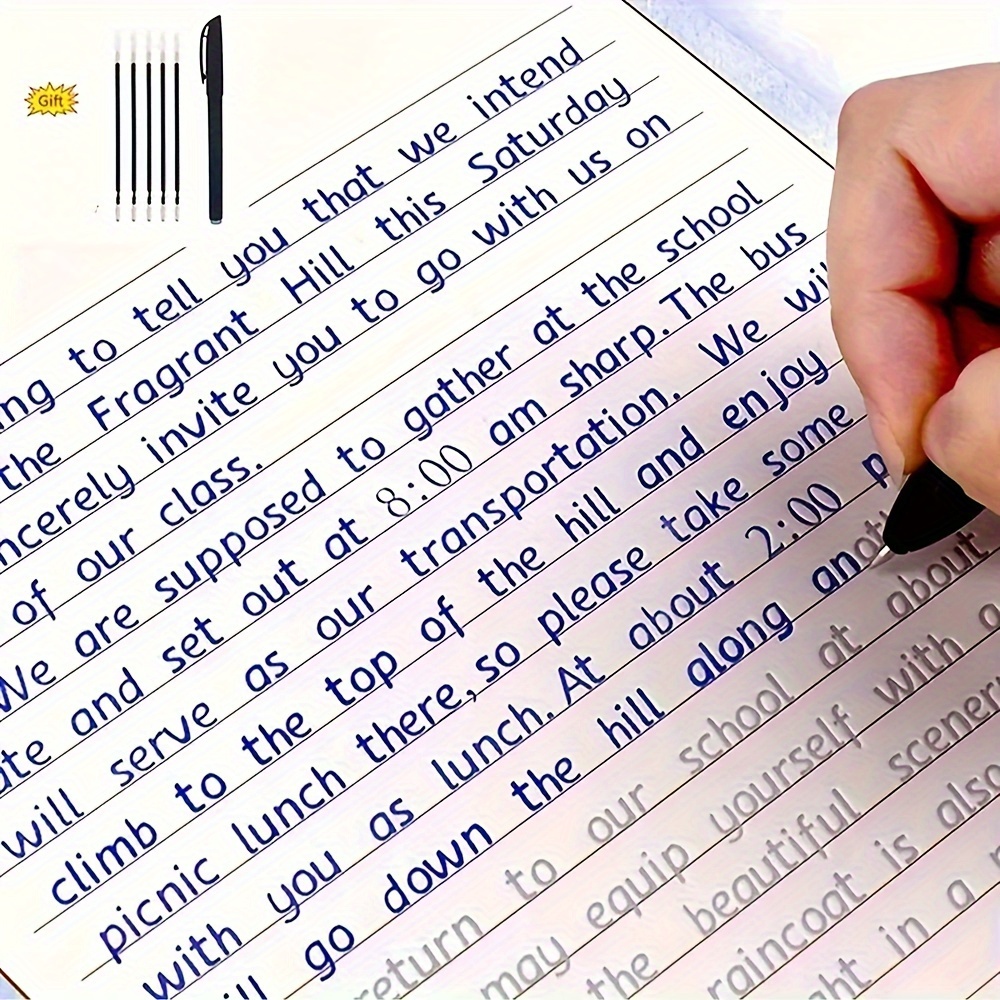 Gift
ng to tell you that we intend
the Fragrant Hill this Saturday
ncerely invite you to go with us on
of our class.
We are supposed to gather at the school
ate and set out at 8:00 am sharp. The bus
will serve as our transportation. We wil
climb to the top of the hill and enjoy
picnic lunch there,so please take some
with you as lunch. At about 2:00 p
ill go down the hill along anot
return to our school at about
may equip yourself with a
the beautiful scener
raincoat is also
ght in a